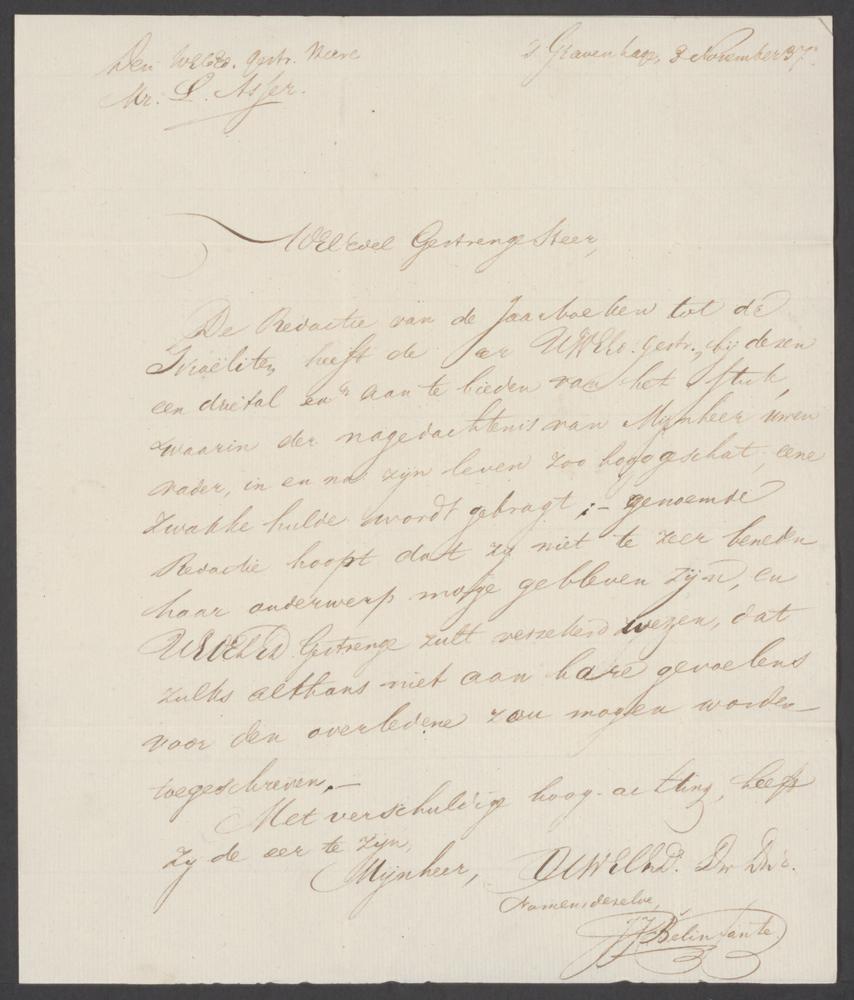 Den WelEd. Gestr. Heere
Mr. L. Asser.
's Gravenhage, 3 November 37.
WelEdel Gestrenge Heer,
De Redactie van de Jaarboeken tot de
Israëliten heeft de eer UWEld. Gestr. bij dezen
een drietal exr aan te bieden van het stuk,
waarin der nagedachtenis van Mijnheer uwen
vader, in en na zijn leven zoo hooggeschat, eene
zwakke hulde wordt gebragt; - genoemde
Redactie hoopt dat zij niet te zeer beneden
haar onderwerp moge gebleven zijn, en
UWElEd Gestrenge zult verzekerd wezen, dat
zulks althans niet aan hare gevoelens
voor den overledene zou mogen worden
toegeschreven. -
Met verschuldig hoog-achting, heeft
zij de eer te zijn,
Mijnheer, UWElEd. Dw Dr.
Namens dezelve,
JJ Belinfante.